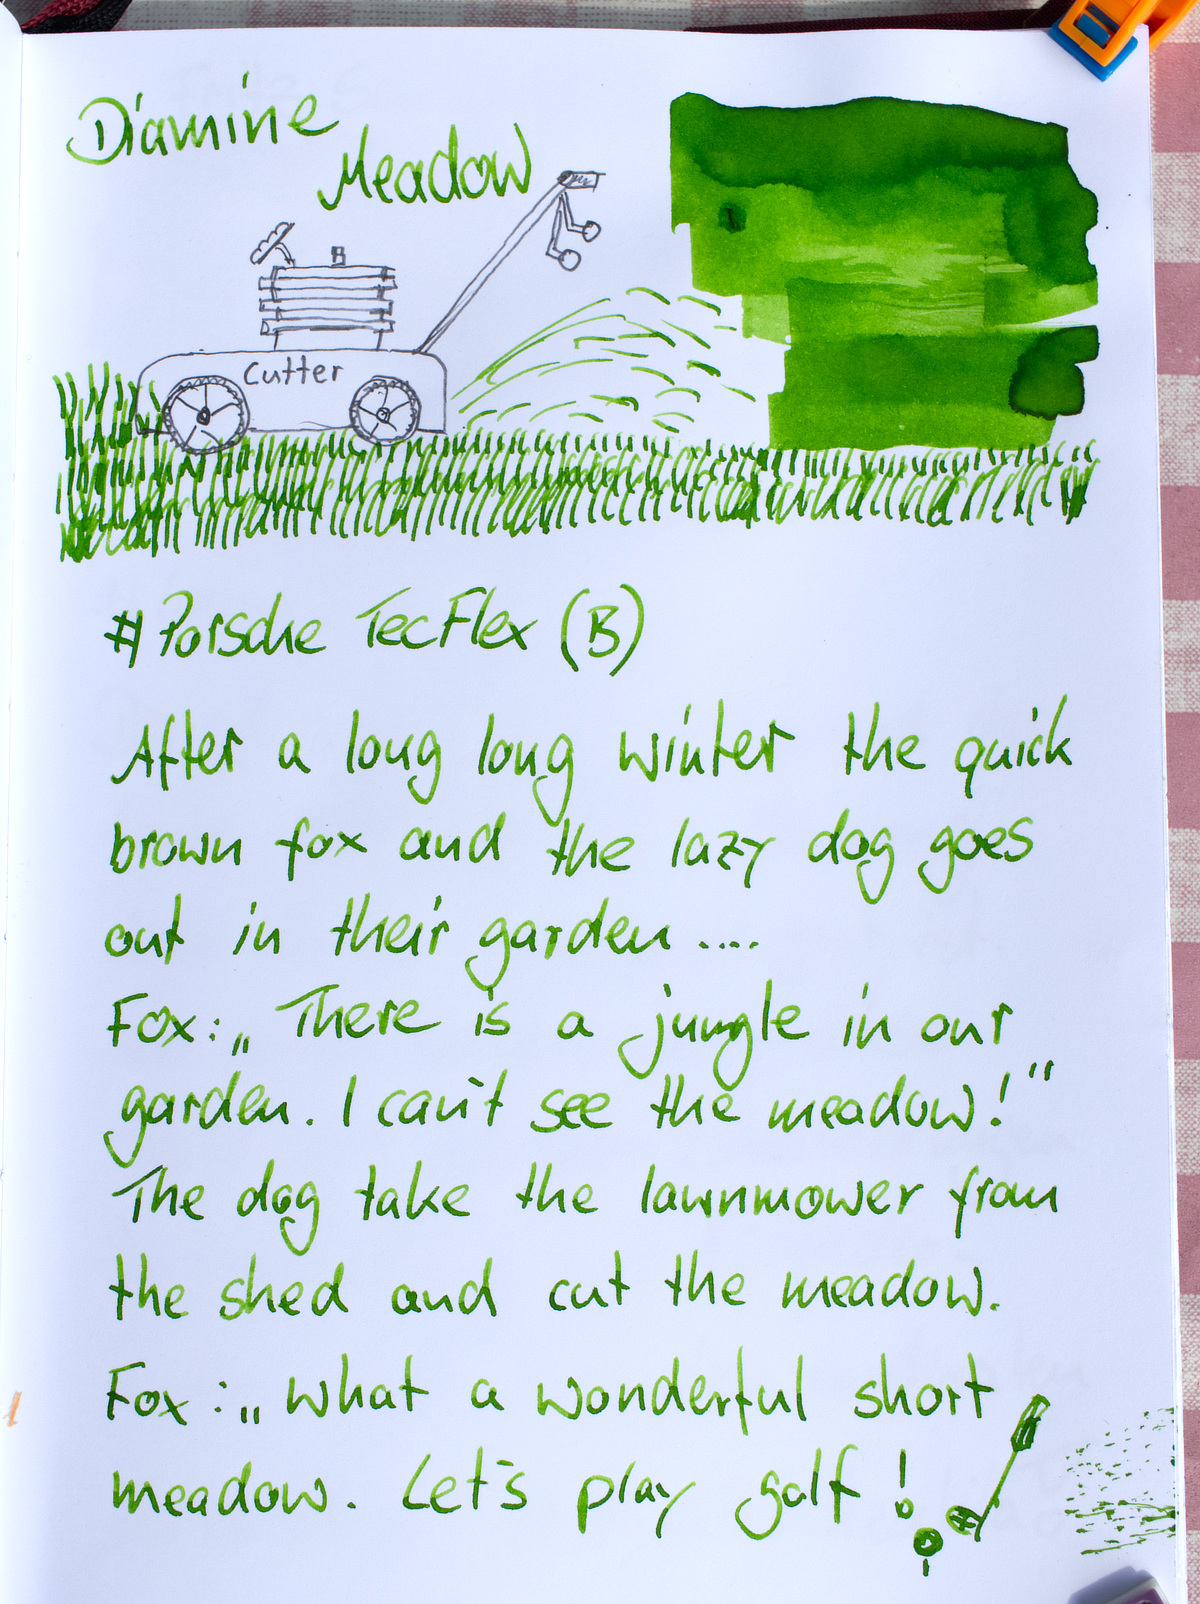 Diamine
Meadow
Cutter
#Porsche TecFlex (B)
After a long long winter the quick
brown fox and the lazy dog goes
out in their garden....
Fox: „There is a jungle in our
garden. I can't see the meadow!"
The dog take the lawnmower from
the shed and cut the meadow.
Fox: „What a wonderful short
meadow. Let's play golf!